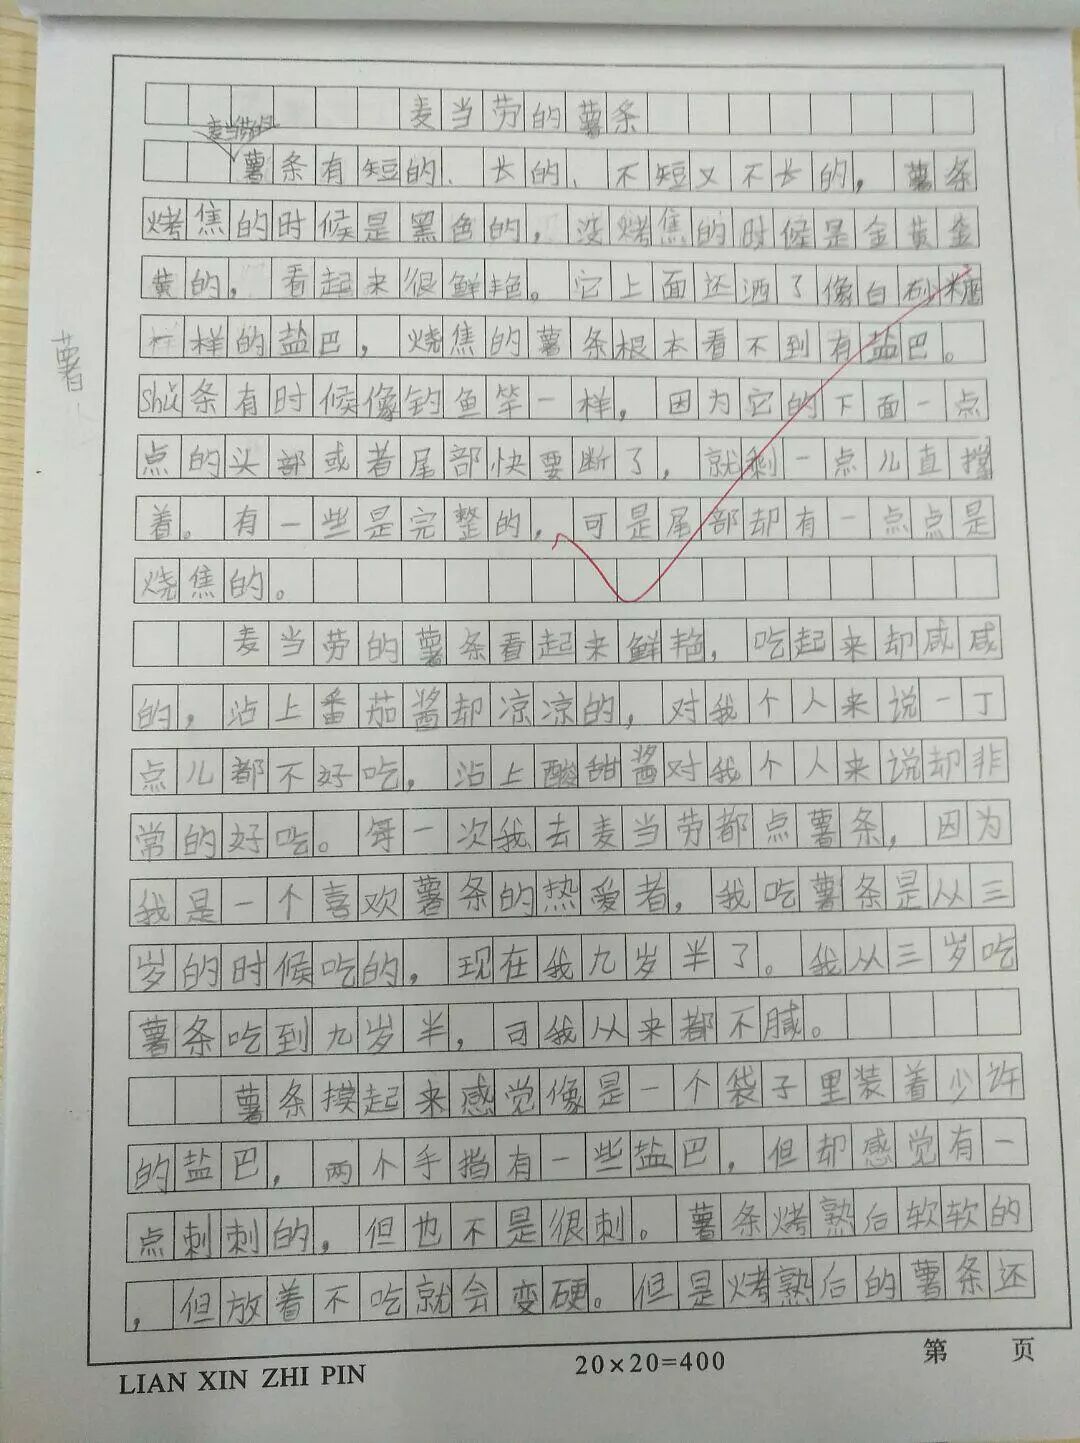 麦当劳的薯条
麦当劳的
薯条有短的、长的、不短又不长的，薯条
烤焦的时候是黑色的，没烤焦的时候是金黄金
黄的，看起来很鲜艳。它上面还洒了像白砂糖
样样的盐巴，烧焦的薯条根本看不到有盐巴。
薯
shǔ条有时候像钓鱼竿一样，因为它的下面一点
点的头部或者尾部快要断了，就剩一点儿直撑
着。有一些是完整的，可是尾部却有一点点是
烧焦的。
麦当劳的薯条看起来鲜艳，吃起来却咸咸
的，沾上番茄酱却凉凉的，对我个人来说一丁
点儿都不好吃，沾上酸甜酱对我个人来说却非
常的好吃。每一次我去麦当劳都点薯条，因为
我是一个喜欢薯条的热爱者，我吃薯条是从三
岁的时候吃的，现在我九岁半了。我从三岁吃
薯条吃到九岁半，可我从来都不腻。
薯条摸起来感觉像是一个袋子里装着少许
的盐巴，两个手指有一些盐巴，但却感觉有一
点刺刺的，但也不是很刺。薯条烤熟后软软的
，但放着不吃就会变硬。但是烤熟后的薯条还
LIAN XIN ZHI PIN 20×20=400 第 页